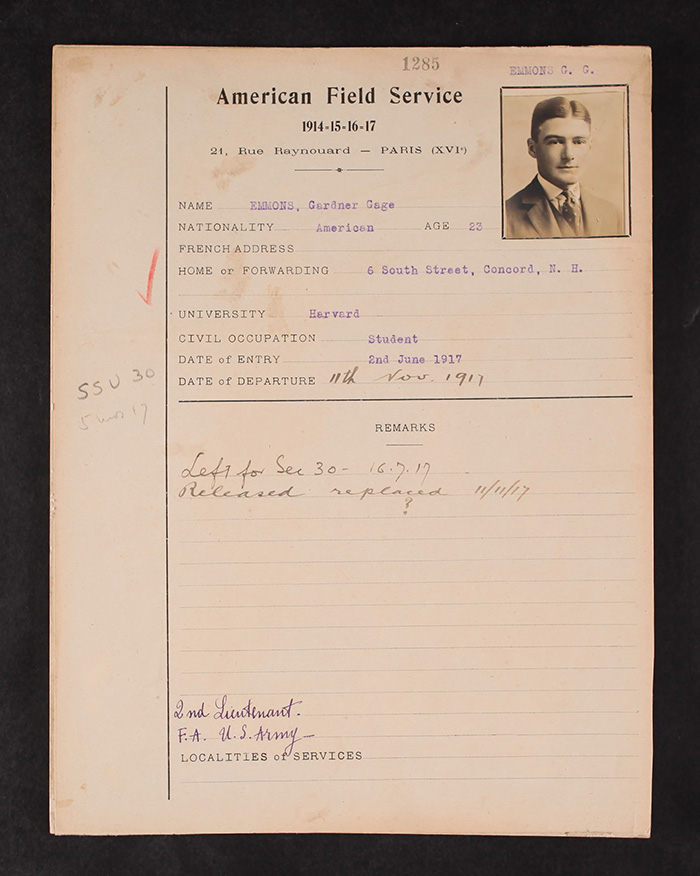 1285
EMMONS G. G.
American Field Service
1914-15-16-17
21, Rue Raynouard — PARIS (XVIe)
NAME EMMONS, Gardner Gage
NATIONALITY American AGE 23
FRENCH ADDRESS
HOME or FORWARDING 6 South Street, Concord, N. H.
UNIVERSITY Harvard
CIVIL OCCUPATION Student
DATE of ENTRY 2nd June 1917
DATE of DEPARTURE 11th Nov. 1917
SSU 30
5 mos 17
REMARKS
Left for Sec 30 - 16.7.17
Released replaced 11/11/17
?
2nd Lieutenant.
F.A. U.S. Army —
LOCALITIES of SERVICES